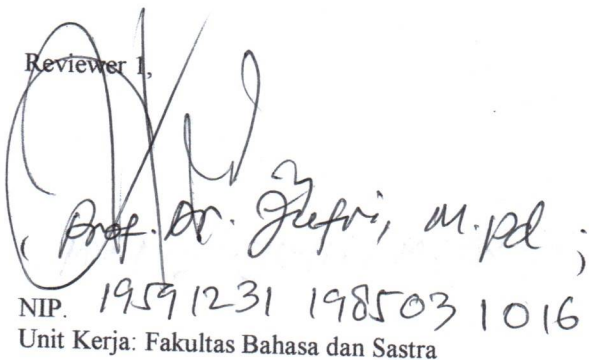 Reviewer 1,
( Prof. Dr. Jufri, M.pd. )
NIP. 19591231 198503 1 016
Unit Kerja: Fakultas Bahasa dan Sastra